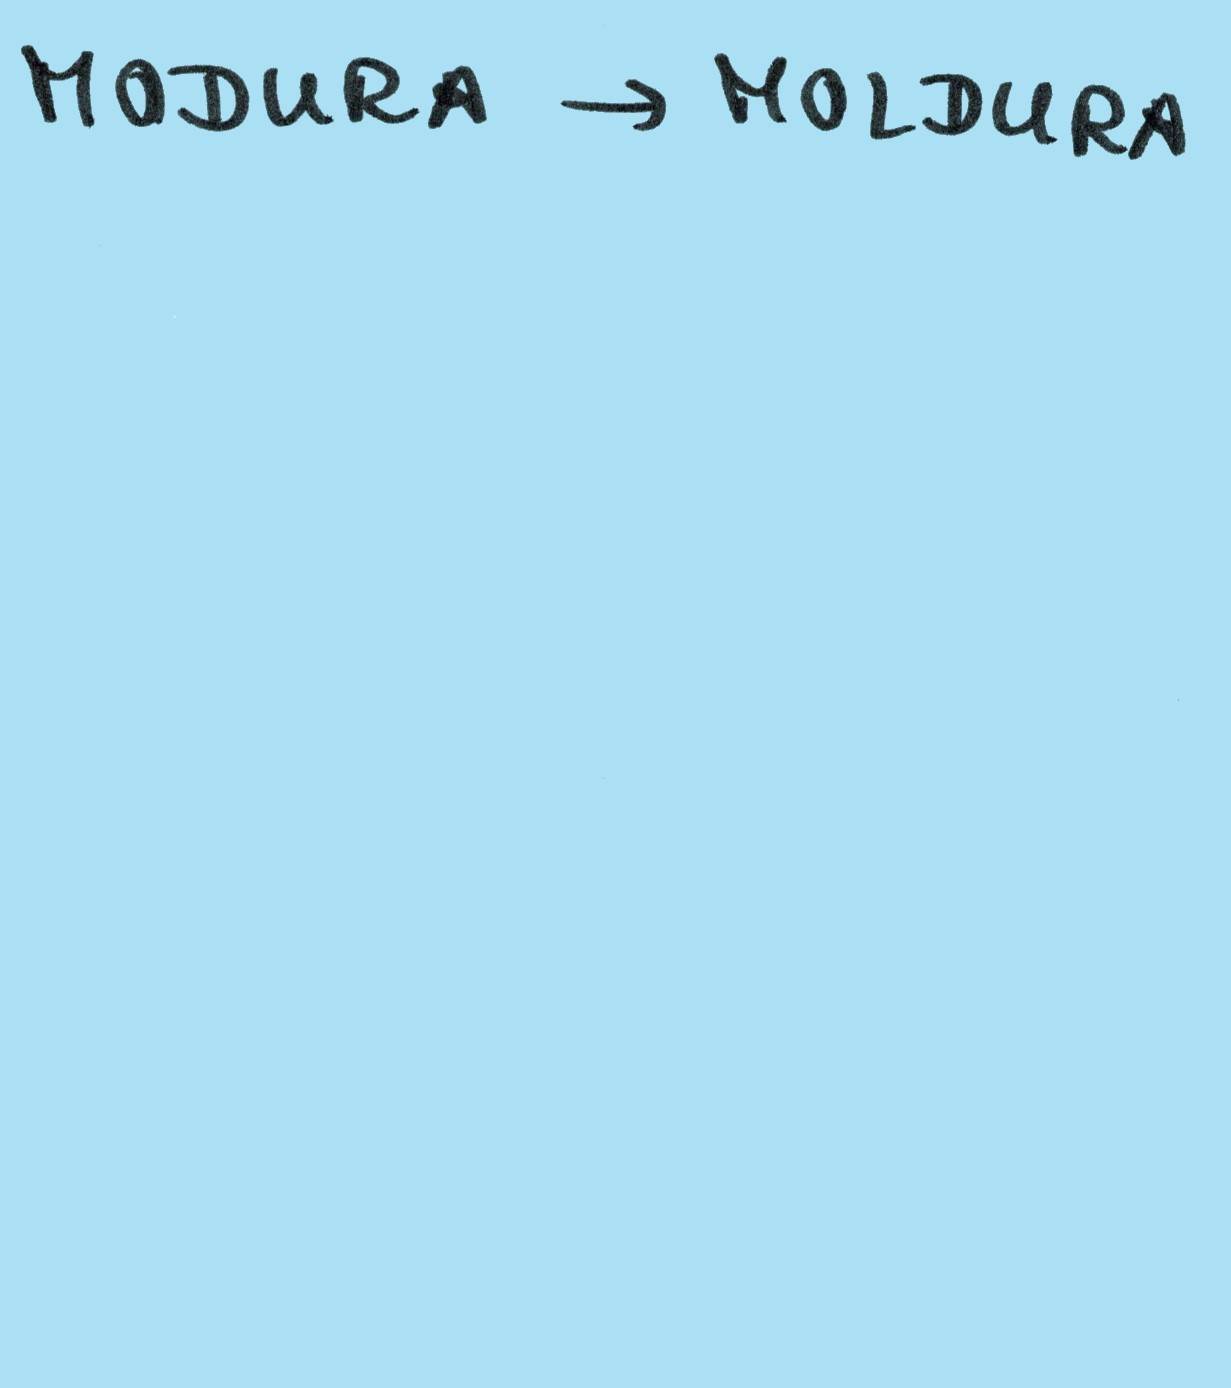 MODURA → MOLDURA